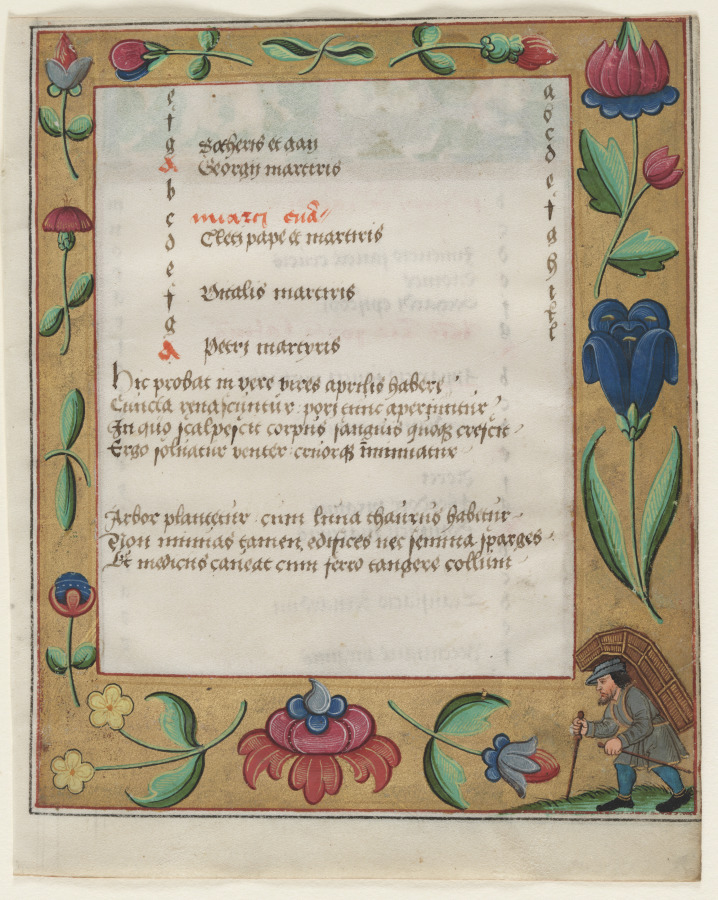 e a
f b
g Sotheris et gaii c
A Georgii martiris d
b e
c marci eua f
d Cleti pape et martiris g
e h
f Vitalis martiris i
g k
A Petri martyris
Hic probat in vere vires aprilis habere
Cuncta renascuntur pori tunc aperiuntur
In quo scalpescit corpus sanguis quoq crescit
Ergo soluatur venter cruorq iminuatur
Arbor plantetur cum luna thaurus habetur
Non minuas tamen edifices nec semina sparges
Et medicus caueat cum ferro tangere collum